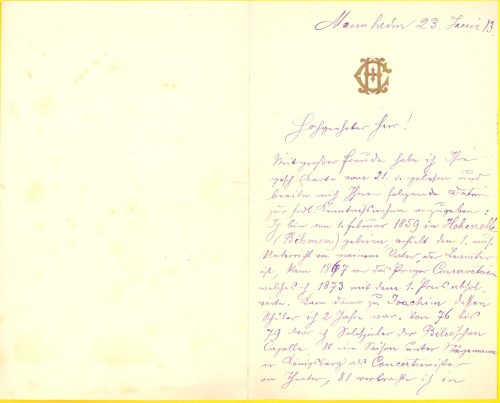 Mannheim 23. Januar 83.
Hochgeehrter Herr!
Mit großer Freude habe ich Ihre
gesch. Karte vom 21. d. gelesen und
beeile mich Ihnen folgende Daten
zur Kenntnisnahme anzugeben:
Ich bin am 1. Februar 1859 in Hohenelbe
(Böhmen) geboren erhielt den 1. mus.
Unterricht von meinem Vater, der
ist, kam 1867 an das Prager Conservatorium
welches ich 1873 mit dem 1. Preis absol-
virte. Kam dann zu Joachim dessen
Schüler ich 2 Jahre war. Von 76 bis
79 war ich Solospieler der Bilse'schen
Capelle 80 eine Saison unter
in Königsberg als Concertmeister
am Theater, 81 verbrachte ich in